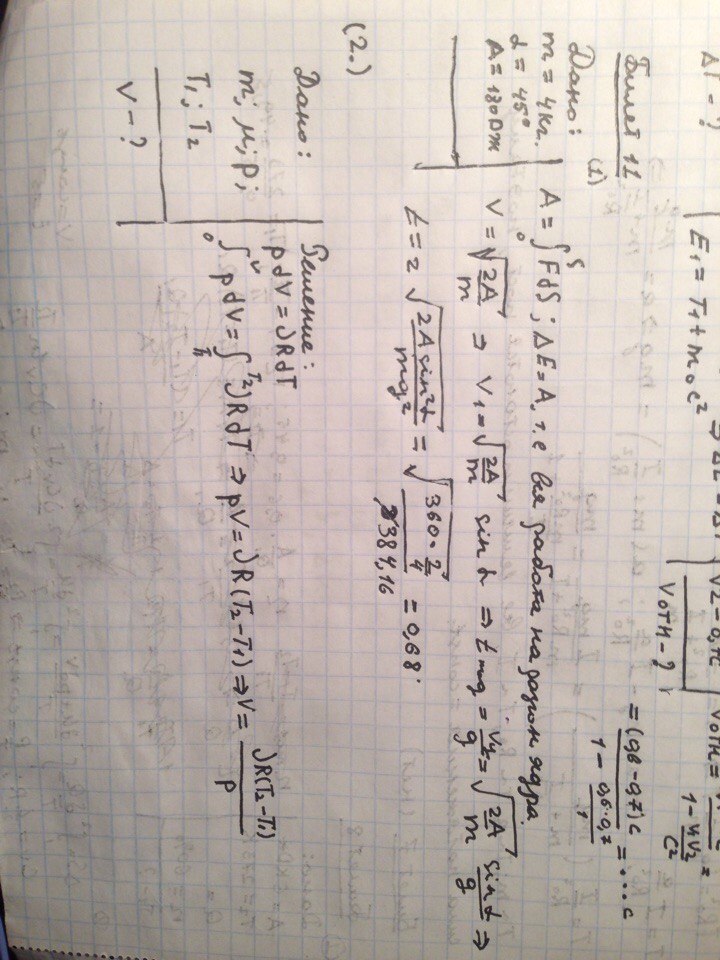 ΔT - ?
E₁ = T₁ + m₀c² ⇒
Vотн - ?
Vотн =
1 - V₁V₂/c²
= (0,6 - 0,7)c / (1 - 0,6·0,7/1) = ...c
Билет 11
(1)
Дано:
m = 4кг.
α = 45°
A = 180Дж
A = ∫₀ˢ FdS; ΔE = A, т.е вся работа на разгон ядра
V = √(2A/m) ⇒ V₁ = √(2A/m) sin α ⇒ t = Vy/g = √(2A/m) sin α/g ⇒
t = 2 √(2A sin²α/mg²) = √(360·2/4 / 384,16) = 0,68.
(2.)
Дано:
m; μ; p;
T₁; T₂
V - ?
Решение:
pdV = νRdT
∫₀ⱽ pdV = ∫_T₁^T₂ νRdT ⇒ pV = νR(T₂ - T₁) ⇒ V = νR(T₂ - T₁)/p